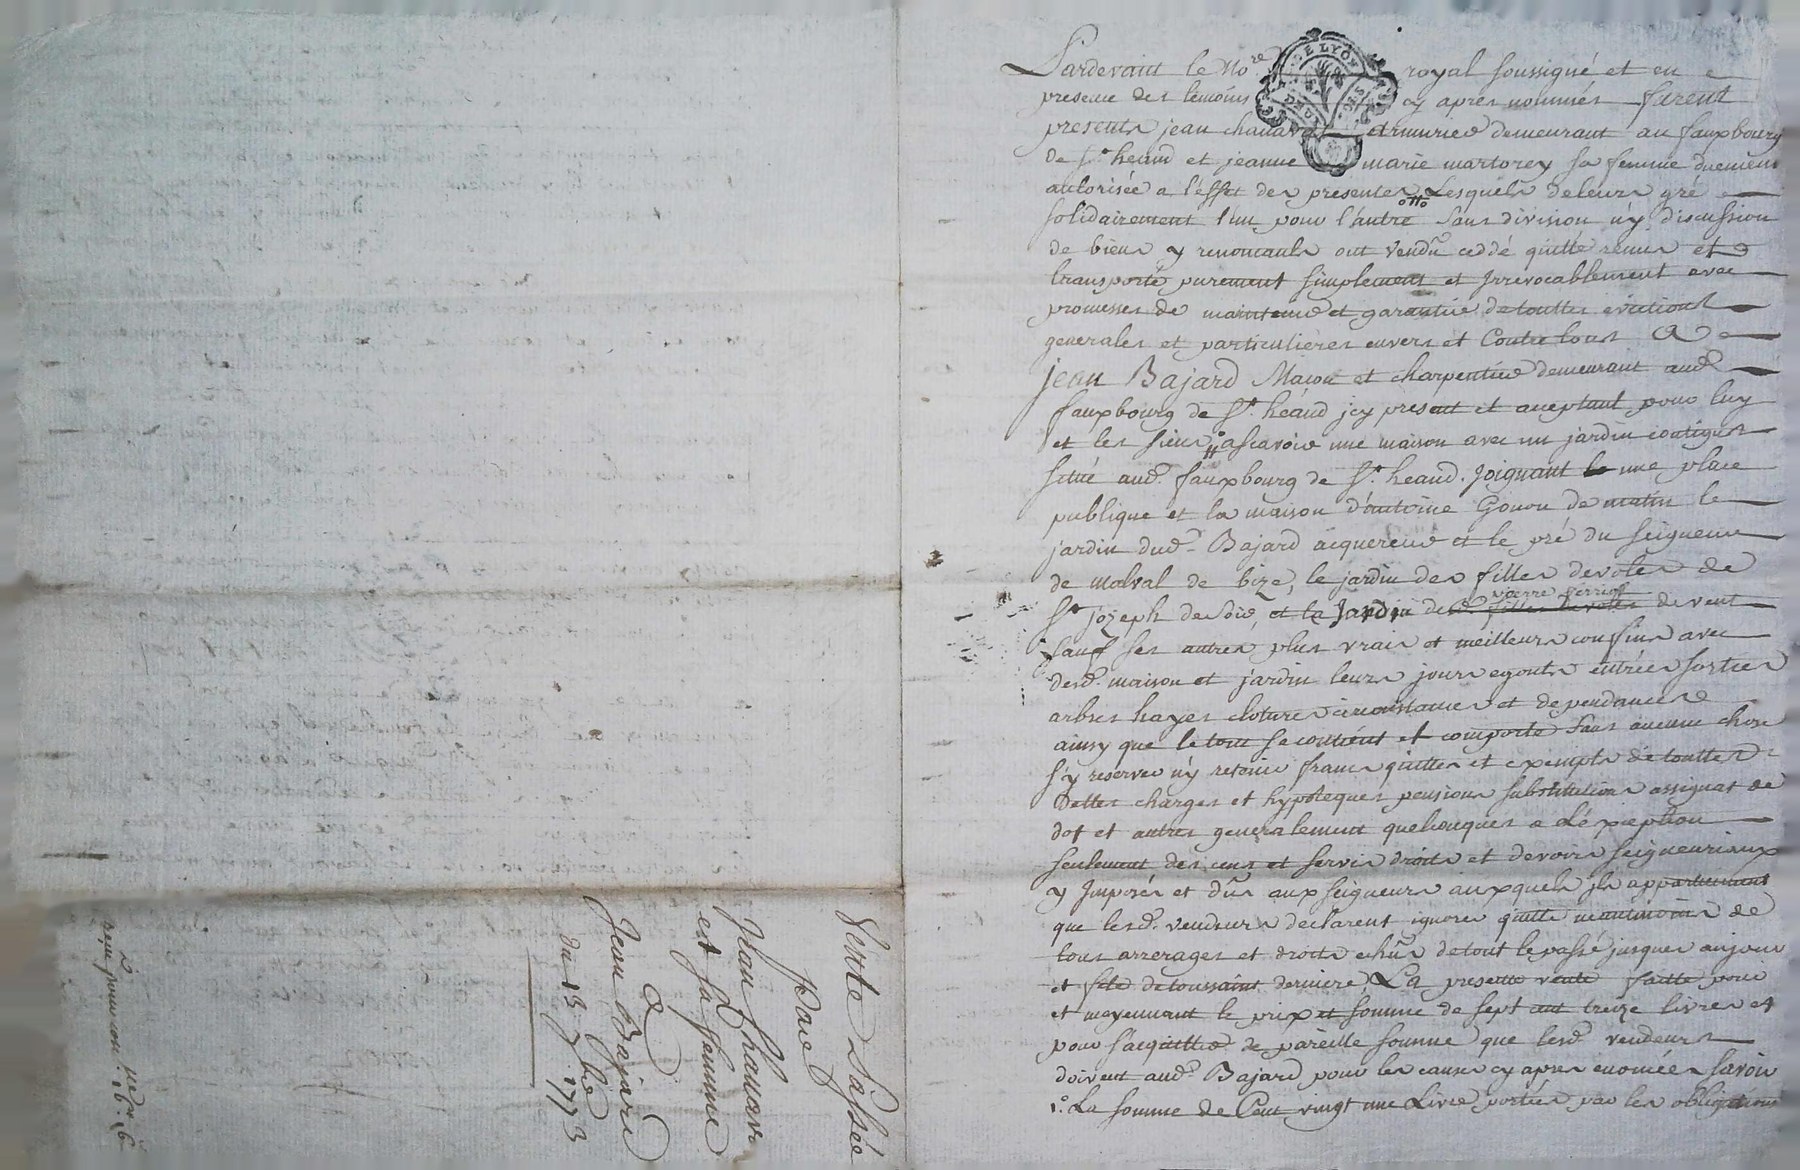 Pardevant le No.re royal soussigné et en
presence des temoins cy apres nommés furent
presents jean chanavat armurier demeurant au fauxbourg
de St. heand et jeanne marie martorey sa femme duement
autorisée a l'effet des presentes Lesquels de leurs gré
solidairement l'un pour l'autre sans division n'y discussion
de biens y renoncants ont vendu ceddé quitté remis et
transporté purement simplement et Irrevocablement avec
promesses de maintenue et garantie de touttes evictions
generales et particulieres envers et Contre tous A
jean Bajard Macon et charpentier demeurant aud.
fauxbourg de St. heand jcy present et aceptant pour luy
et les siens ascavoir une maison avec un jardin contigus
situé aud. fauxbourg de St. heand. Joignant une place
publique et la maison d'antoine Gonon de matin le
jardin dud. Bajard acquereur et le pré du seigneur
de malval de bize, le jardin des filles devotes de
St. jozeph de soir, et la Jardin de pierre perrier de vent
sauf ses autres plus vrais et meilleurs confins avec
desd. maison et jardin leurs jours egouts entrées sorties
arbres hayes cloture circonstances et dependances
ainsy que le tout se contient et comporte sans aucune chose
s'y reserver n'y retenir francs quittes et exempts de touttes
dettes charges et hypoteques pensions substitutions assignat de
dot et autres generalement quelconques a L'exception
seulement des cens et servis droits et devoirs seigneuriaux
y Imposés et dus aux seigneurs auxquels jls appartiennent
que lesd. vendeurs declarent ignorer quitte neantmoins de
tous arrerages et droits echus de tout le passé jusques aujour
et fete de toussaint derniere La presente vente faitte pour
et moyennant le prix et somme de sept cent treize livres et
pour s'acquitter de pareille somme que lesd. vendeurs
doivent aud. Bajard pour les causes cy apres enoncées savoir
1.° La somme de Cent vingt une Livre portée par les obligations
Vente Passée
Par
Jean Chanavat
et sa femme
A
Jean Bajard
du 13. 7.bre 1773